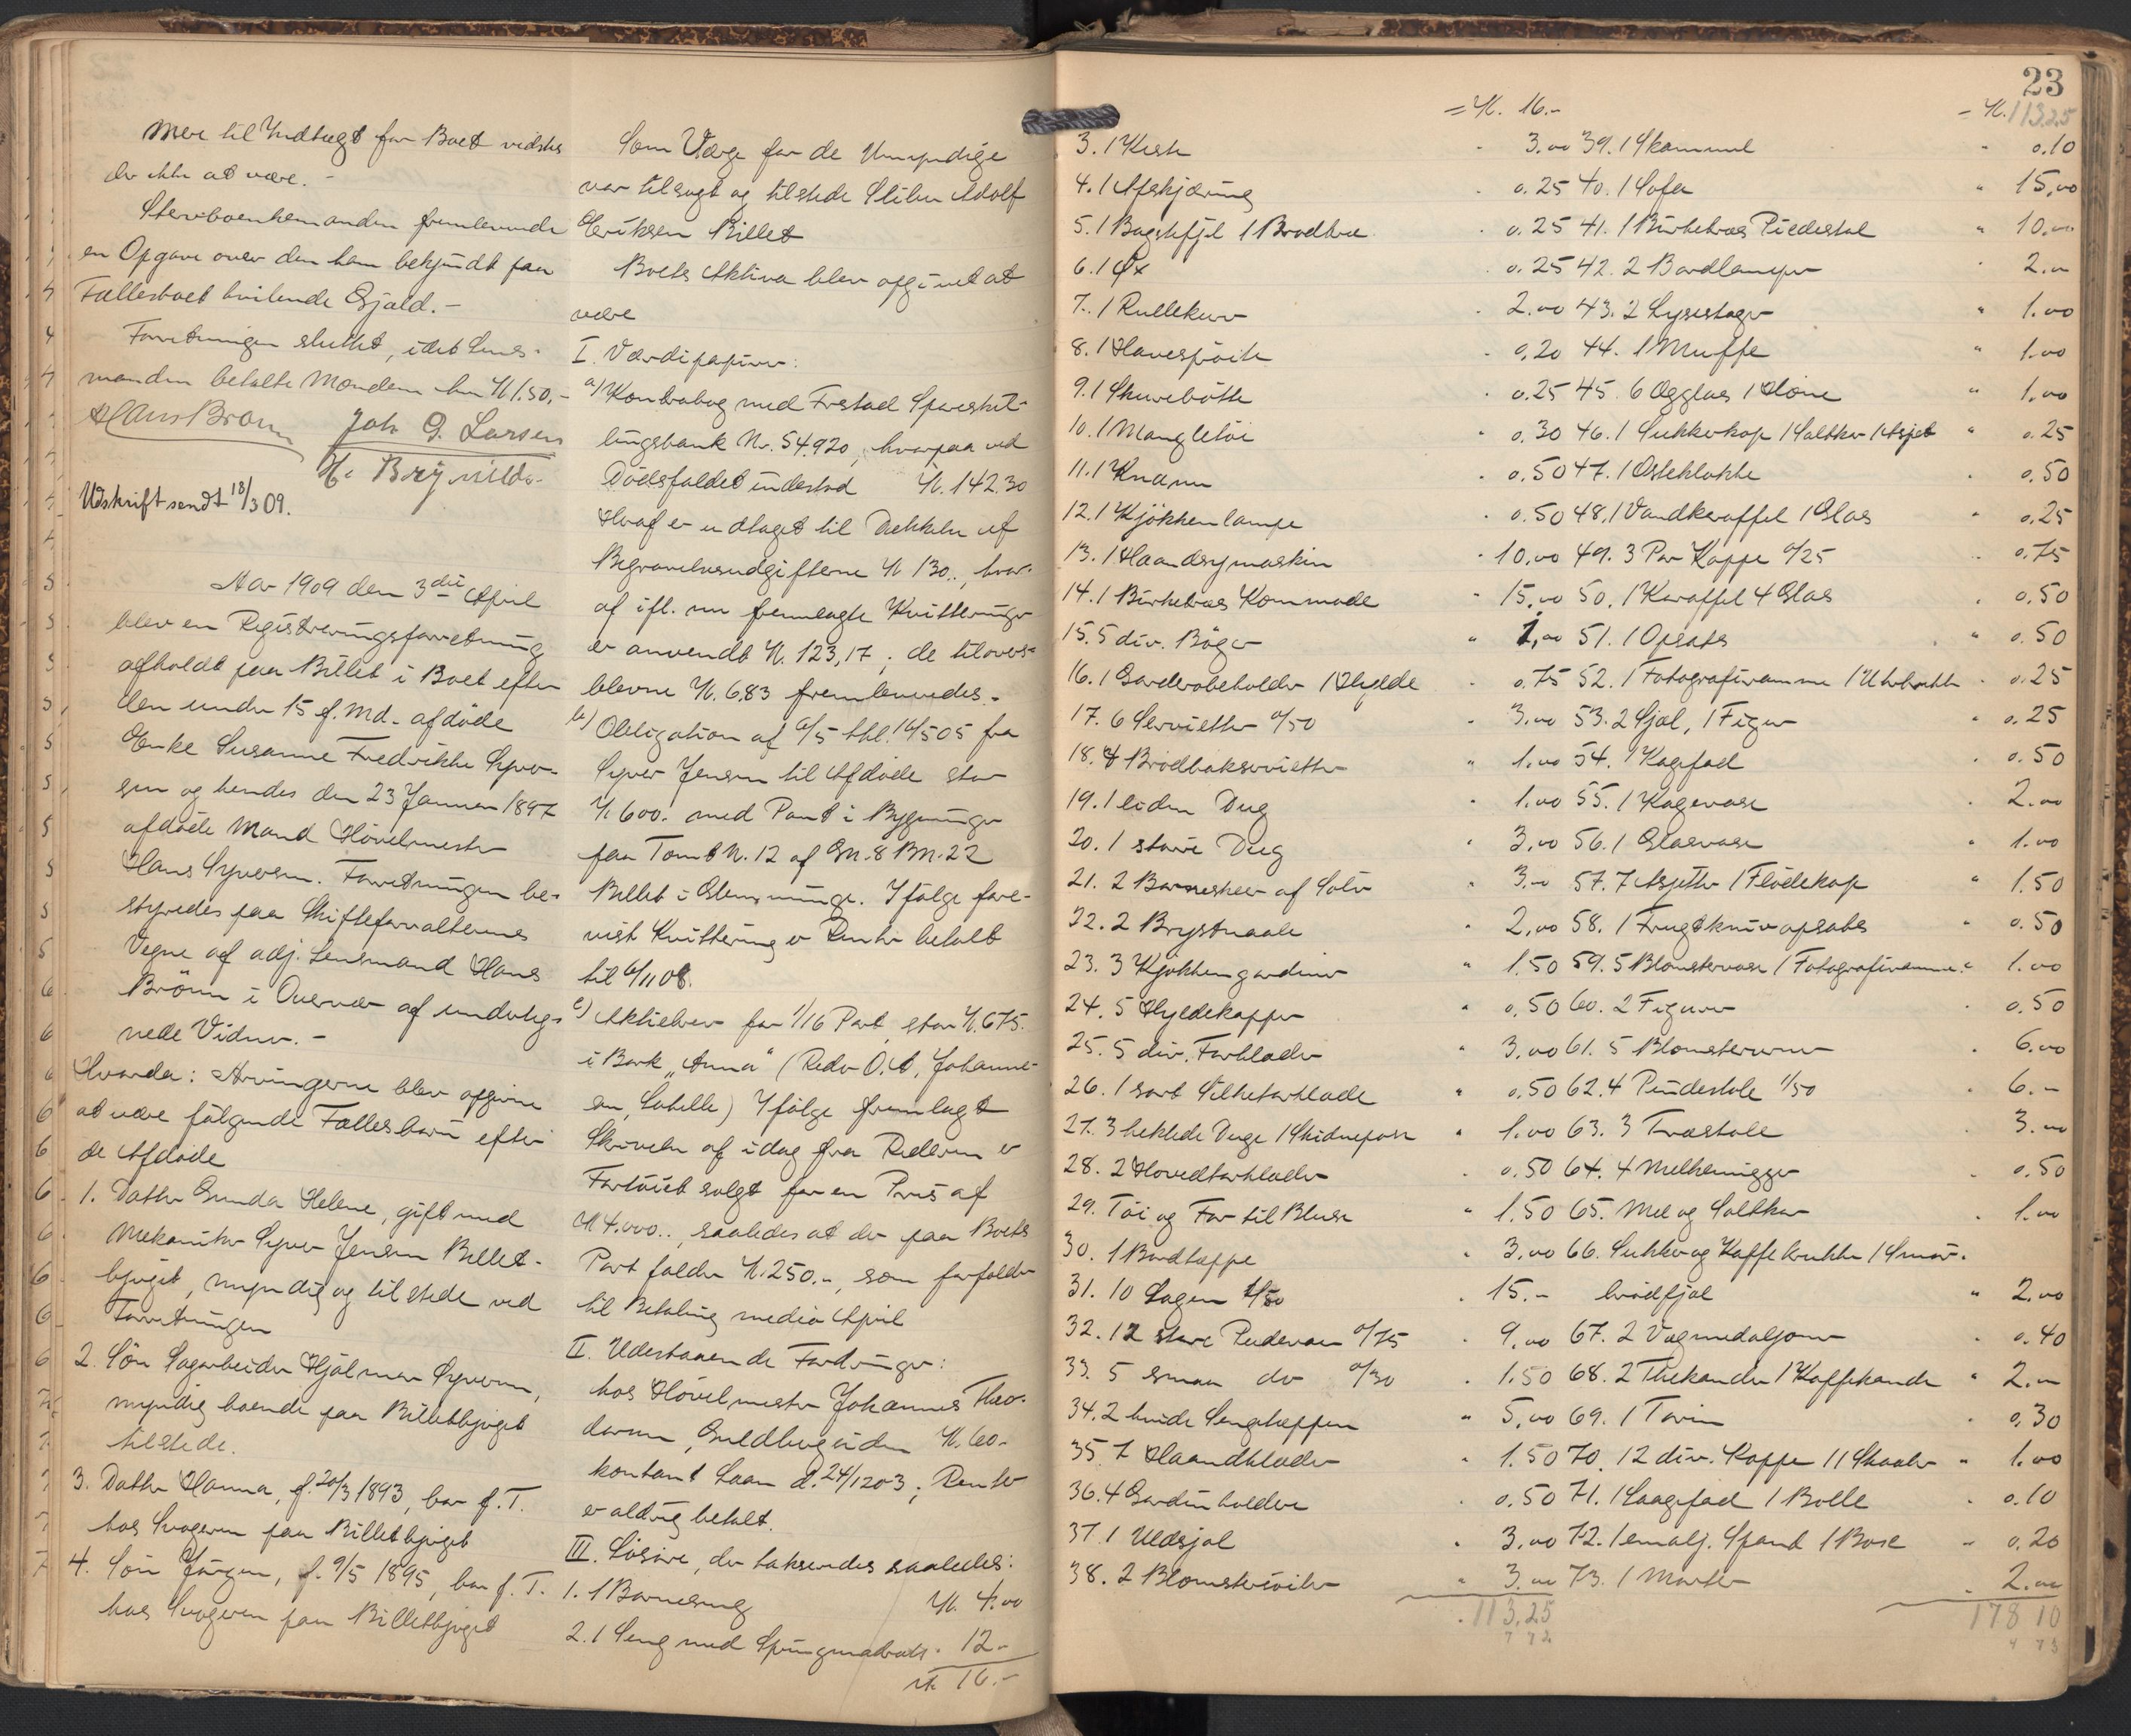 Mere til Indtægt for Boet vidstes
der ikke at være. -
Stervboenkemanden fremleverede
en Opgave over den ham bekjendt paa
Fællesboet hvilende Gjæld. -
Forretningen sluttet, idet Lens-
manden betalte Mændene hver Kr 1.50. -
Hans Brønn Joh G. Larsen
H. Brynildsen
Udskrift sendt 18/3 09.
Aar 1909 den 3die April
blev en Registreringsforretning
afholdt paa Billet i Boet efter
den under 15 f. Md. afdøde
Enke Susanne Fredrikke Syver-
sen og hendes den 23 Januar 1897
afdøde Mand Høvelmester
Hans Syversen. Forretningen be-
styredes paa Skifteforvalterens
Vegne af adj. Lensmand Hans
Brønn i Overvær af underteg-
nede Vidner. -
Hvorda: Arvingerne blev opgivne
at være følgende Fællesbørn efter
de Afdøde
1. Datter Gunda Helene, gift med
Mekaniker Syver Jensen Billet-
bjuget, myndig og tilstede ved
Forretningen
2. Søn Sagarbeider Hjalmar Syversen,
myndig boende paa Billetbjuget
tilstede.
3. Datter Hanna, f. 20/3 1893, bor f. T.
hos Svogeren paa Billetbjuget
4. Søn Jørgen, f. 9/5 1895, bor f. T.
hos Svogeren paa Billetbjuget
Som Værge for de Umyndige
var tilsagt og tilstede Stiber Adolf
Eriksen Billet
Boets Aktiva blev opgivet at
være
I. Værdipapirer:
a) Kontrabog med Fr.stad Spareskil-
lingsbank Nr. 54.920, hvorpaa ved
Dødsfaldet indestod Kr. 142.30
Heraf er udtaget til Dækkelse af
Begravelsesudgifterne Kr 130.., hvor-
af ifl. nu fremlagte Kvitteringer
er anvendt Kr. 123,17; de tilovers-
blevne Kr. 6.83 fremleveredes. -
b) Obligation af 6/5 thl. 16/5 05 fra
Syver Jensen til Afdøde stor
Kr 600. med Pant i Bygninger
paa Tomt N. 12 af Gn. 8 Bn. 22
Billet i Glemminge. Ifølge fore-
vist Kvittering er Renter betalt
til 6/11 08.
c) Aktiebrev for 1/16 Part, stor Kr. 675.
i Bark "Anna" (Reder O. A. Johanne-
sen, Labelle) Ifølge fremlagt
Skrivelse af idag fra Rederen er
Fartøiet solgt for en Pris af
Kr 4.000.., saaledes at der paa Boets
Part falder Kr. 250.-, som forfalder
til Betaling medio April
II. Udestaaende Fordringer:
hos Høvelmester Johannes Theo-
dorsen, Guldbergsiden Kr. 60.-
kontant Laan d. 24/12 03; Renter
er aldrig betalt.
III. Løsøre, der takseredes saaledes:
1. 1 Barneseng Kr. 4.00
2. 1 Seng med Springmadrats. 12.-
Kr. 16.-
23
= Kr. 16.-
3. 1 Kiste " 3.00
4. 1 Afskjæring " 0.25
5. 1 Bagstefjel 1 Brødbræ " 0.25
6. 1 Øx " 0.25
7. 1 Rullekurv " 2.00
8. 1 Havesprøite " 0.20
9. 1 Skurebøtte " 0.25
10. 1 Mangletøi " 0.30
11. 1 Kværn " 0.50
12. 1 Kjøkkenlampe " 0.50
13. 1 Haandsymaskin " 10.00
14. 1 Birketræs Kommode " 15.00
15. 5 div. Bøger " 1.00
16. 1 Garderobeholder 1 Hylde " 0.75
17. 6 Servietter 0/50 " 3.00
18. 4 Brødbakservietter " 1.00
19. 1 liden Dug " 1.00
20. 1 større Dug " 3.00
21. 2 Barneskeer af Sølv " 3.-
22. 2 Brystnaale " 2.00
23. 3 Kjøkkengardiner " 1.50
24. 5 Hyldekapper " 0.50
25. 5 div. Forklæder " 3.00
26. 1 sort Silketørklæde " 0.50
27. 3 heklede Duge 1 Skidnepose " 1.00
28. 2 Hovedtørklæder " 0.50
29. Tøi og For til Bluse " 1.50
30. 1 Bordteppe " 3.00
31. 10 Lagen 1/50 " 15.-
32. 12 store Pudevaar 0/75 " 9.00
33. 5 smaa do 0/30 " 1.50
34. 2 hvide Sengetæpper " 5.00
35. 7 Haandklæder " 1.50
36. 4 Gardinholdere " 0.50
37. 1 Uldsjal " 3.00
38. 2 Blomsterøiler " 3.00
113.25
= Kr. 113.25
39. 1 Skammel " 0.10
40. 1 Sofa " 15.00
41. 1 Birketræs Piedestal " 10.00
42. 2 Bordlamper " 2.00
43. 2 Lysestager " 1.00
44. 1 Muffe " 1.00
45. 6 Egglas 1 Høne " 1.00
46. 1 Sukkerkop 1 Saltkar 1 Asjet " 0.25
47. 1 Osteklokke " 0.50
48. 1 Vandkaraffel 1 Glas " 0.25
49. 3 Par Kopper 0/25 " 0.75
50. 1 Karaffel 4 Glas " 0.50
51. 1 Opsats " 0.50
52. 1 Fotografiramme 1 Uhrbrikke " 0.25
53. 2 Sjal, 1 Figur " 0.25
54. 1 Kagefad " 0.50
55. 1 Kagevase " 2.00
56. 1 Glasvase " 1.00
57. 7 Asjetter 1 Flødekop " 1.50
58. 1 Frugtknivopsats " 0.50
59. 5 Blomstervaser 1 Fotografiramme " 1.00
60. 2 Figurer " 0.50
61. 5 Blomsterurner " 6.00
62. 4 Pindestole 1/50 " 6.-
63. 3 Træstole " 3.00
64. 4 Melkemugger " 0.50
65. Mel og Saltkar " 1.00
66. Sukker og Kaffekrukke 1 Smør-
brødfjøl " 2.00
67. 2 Vægmedaljoner " 0.40
68. 2 Thekander 1 Kaffekande " 2.00
69. 1 Terin " 0.30
70. 12 div. Kopper 11 Skaaler " 1.00
71. 1 Laagefad 1 Bolle " 0.10
72. 1 emalj. Spand 1 Bose " 0.20
73. 1 Morter " 2.00
178 10